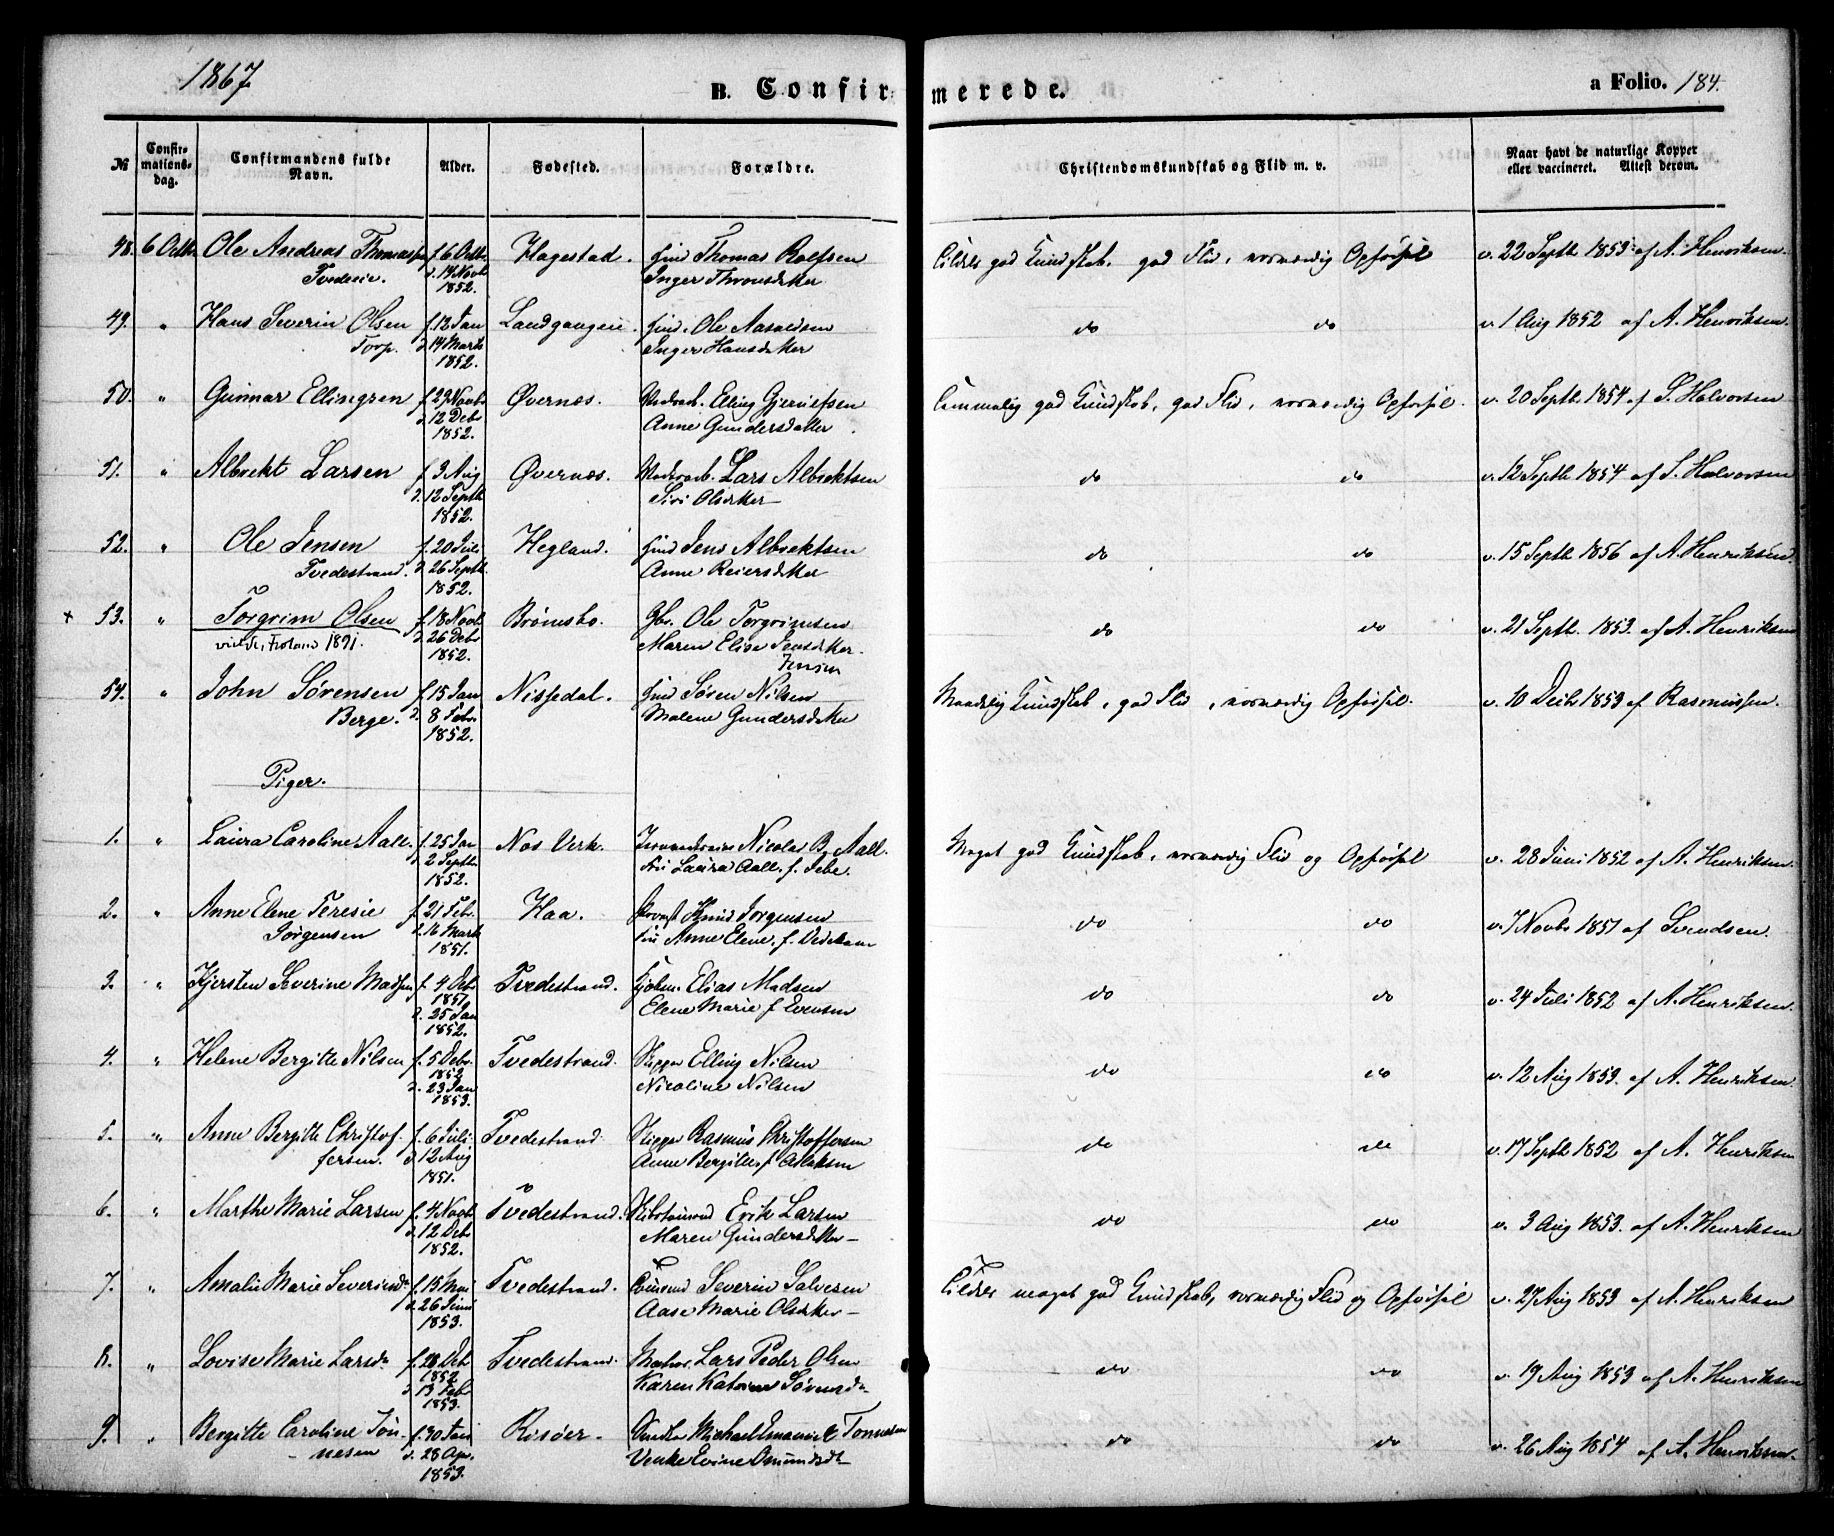 1867.
B. Confirmerede.
a Folio. 184.
№
Confirmationsdag.
Confirmandens fulde Navn.
Alder.
Fødested.
Forældre.
Christendomskundskab og Flid m. v.
Naar havt de naturlige Kopper eller vaccineret. Attest derom.
48. 6 Octbr. Ole Andreas Thomassen f. 6 Octbr. Hagestad. Thomas Rolfsen god Kundskab, god Flid, Opførsel v. 22 Septb 1853 af A. Henriksen.
Tvedere. d. 14 Novb Inger Thronsdatter
1852.
49. " Hans Severin Olsen f. 12 Jan Landgangen. Ole Aasoldsen do do v. 1 Aug 1852 af A. Henriksen.
Torp. d. 14 Marts Inger Hansdatter
1852.
50. " Gunnar Ellingsen f. 29 Novb Øvernæs. Elling god Kundskab, god Flid, Opførsel. v. 20 Septb 1854 af S. Halvorsen
d. 12 Debr Anne Gundersdatter
1852.
51. " Albrekt Larsen f. 3 Aug Øvernæs. Lars Albrektsen do do v. 12 Septb 1854 af S. Halvorsen
d. 12 Septb Siri Olsdatter
1852.
52. " Ole Jensen f. 20 Juli Hegland. Jens Albrektsen do do v. 15 Septb 1856 af A. Henriksen.
Tvedestrand. d. 26 Septb. Anne Reiersdatter
1852.
+ 53. " Torgrim Olsen f. 18 Novb Brømsbo. Gbr. Ole Torgrimsen do do v. 21 Septb. 1853. af A. Henriksen
1891. d. 26 Debr Maren Elise Jensdatter.
1852. Jensen
54. " John Sørensen f. 15 Jan Nissedal. Søren Nilsen Maadelig Kundskab, god Flid, Opførsel. v. 10 Decbr 1853 af Rasmussen.
Berge. d. 8 Febr. Malene Gundersdatter
1852.
Piger.
1. " Laura Caroline Aall. f. 25 Jan Næs Verk. Nicolai B. Aall. Meget god Kundskab, Flid og Opførsel v. 28 Juni 1852 af A. Henriksen.
d. 2 Septb. Laura Aall f.
1852.
2. " Anne Elene Teresie f. 21 Feb. Haa. Knud Jørgensen do do v. 7 Novbr 1851 af Svendsen.
Jørgensen d. 16 Marts Anne Elene, f.
1851.
3. " Kjersten Severine Madsen f. 4 Oct Tvedestrand. Elias Madsen do do v. 24 Juli 1852 af A. Henriksen.
1851. Elene Marie f. Evensen
d. 25 Jan
1852.
4. " Helene Bergitte Nilsen f. 5 Debr. Tvedestrand. Skipper Elling Nilsen do do v. 12 Aug 1853. af A. Henriksen.
1852 Nicoline Nilsen
d. 23 Jan
1853.
5. " Anne Bergitte Christof- f. 6 Juli Tvedestrand. Skipper Rasmus Christoffersen do do v. 17 Septb 1852 af A. Henriksen
fersen. d. 12 Aug Anne Bergitte f. Aslaksen
1851.
6. " Marthe Marie Larsen f. 4 Novb Tvedestrand. Erik Larsen do do v. 3 Aug 1853. af A. Henriksen
d. 12 Deb Maren Gundersdatter
1852.
7. " Amalie Marie Severinsdr f. 15 Mai Tvedestrand. Severin Salvesen meget god Kundskab, Flid og Opførsel v. 27 Aug 1853 af A. Henriksen
d. 26 Juni Aase Marie Olsdatter
1853.
8. " Lovise Marie Larsdr f. 28 Oct Tvedestrand. Lars Peder Olsen do do v. 19 Aug 1853 af A. Henriksen
1852 Karen Katrine Sørensdr
d. 13 Feb
1853.
9. " Bergitte Caroline Tøn- f. 30 Risøer. Michael Tønnesen do do v. 26 Aug 1854 af A. Henriksen.
nesen d. 28 Apr.
1853.